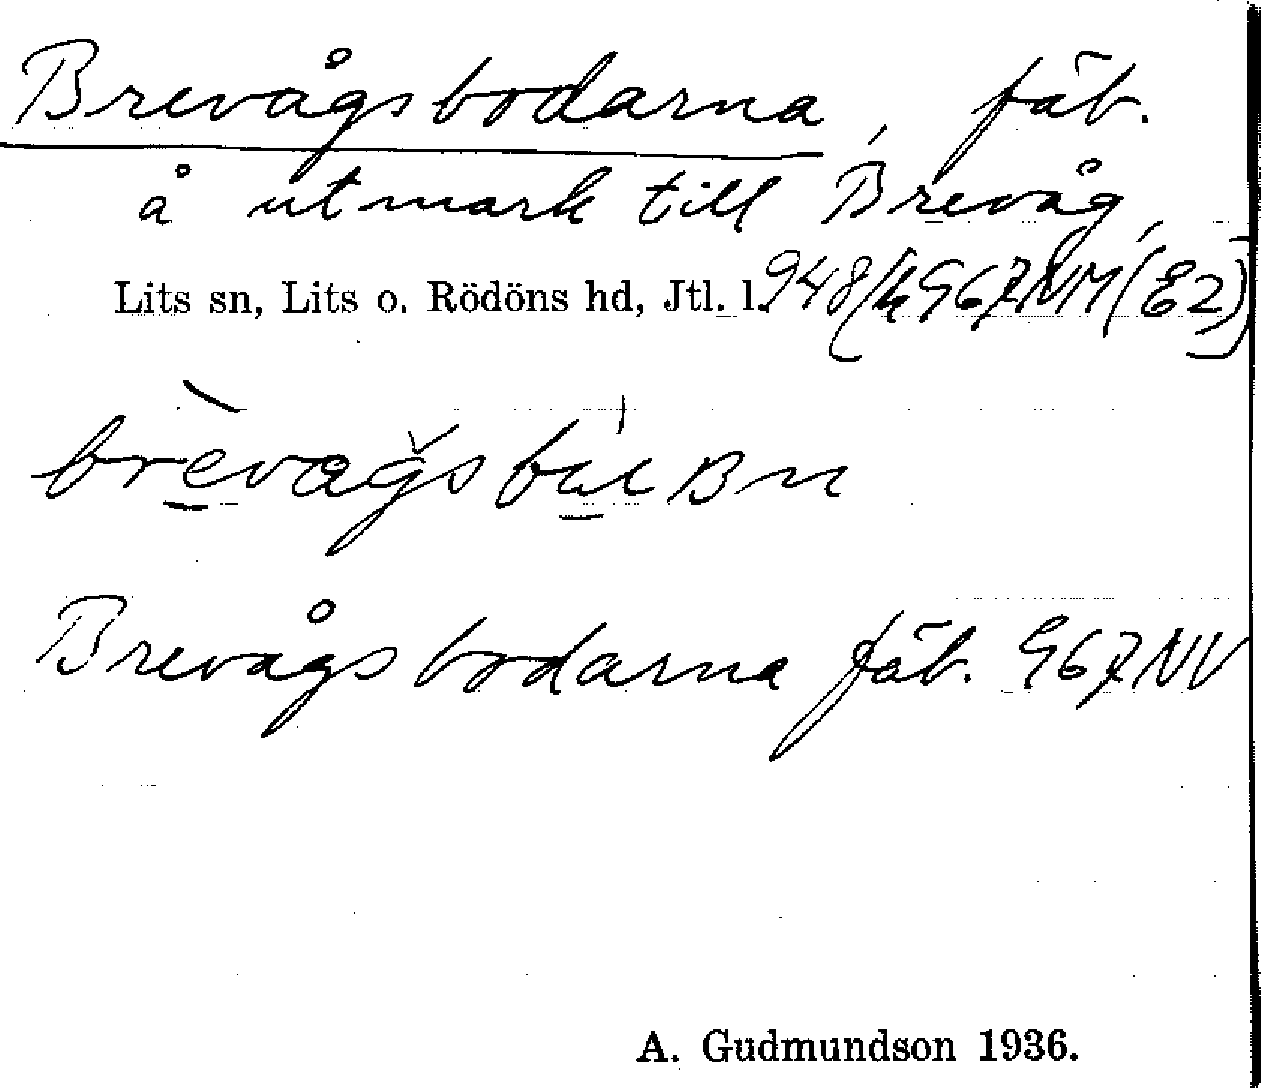 Brevågsbodarna, fäb.
å utmark till Brevåg,
Lits sn, Lits o. Rödöns hd, Jtl. l. 948/h967NM(E2)
Brevågsbodarna fäb. 967NV
A. Gudmundson 1936.